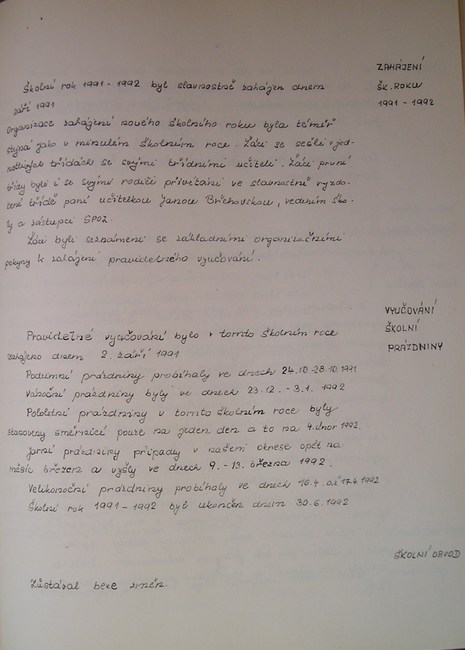 ZAHÁJENÍ
ŠK. ROKU
1991 - 1992
Školní rok 1991 - 1992 byl slavnostně zahájen dnem
září 1991
Organizace zahájení nového školního roku byla téměř
stejná jako v minulém školním roce. Žáci se sešli v jed-
notlivých třídách se svými třídními učiteli. Žáci první
třídy byli i se svými rodiči přivítáni ve slavnostně vyzdo-
bené třídě paní učitelkou Janou Břehovskou, vedením ško-
ly a zástupci SPOZ.
Žáci byli seznámeni se základními organizačními
pokyny k zahájení pravidelného vyučování.
VYUČOVÁNÍ
ŠKOLNÍ
PRÁZDNINY
Pravidelné vyučování bylo v tomto školním roce
zahájeno dnem 2. září 1991
Podzimní prázdniny probíhaly ve dnech 24.10 - 28.10.1991
Vánoční prázdniny byly ve dnech 23.12. - 3.1. 1992
Pololetní prázdniny v tomto školním roce byly
stanoveny směrnicí pouze na jeden den a to na 4. únor 1992.
Jarní prázdniny připadly v našem okrese opět na
měsíc březen a vyšly ve dnech 9. - 13. března 1992.
Velikonoční prázdniny probíhaly ve dnech 16.4. až 17.4. 1992
Školní rok 1991 - 1992 byl ukončen dnem 30.6.1992
ŠKOLNÍ OBVOD
Zůstával beze změn.